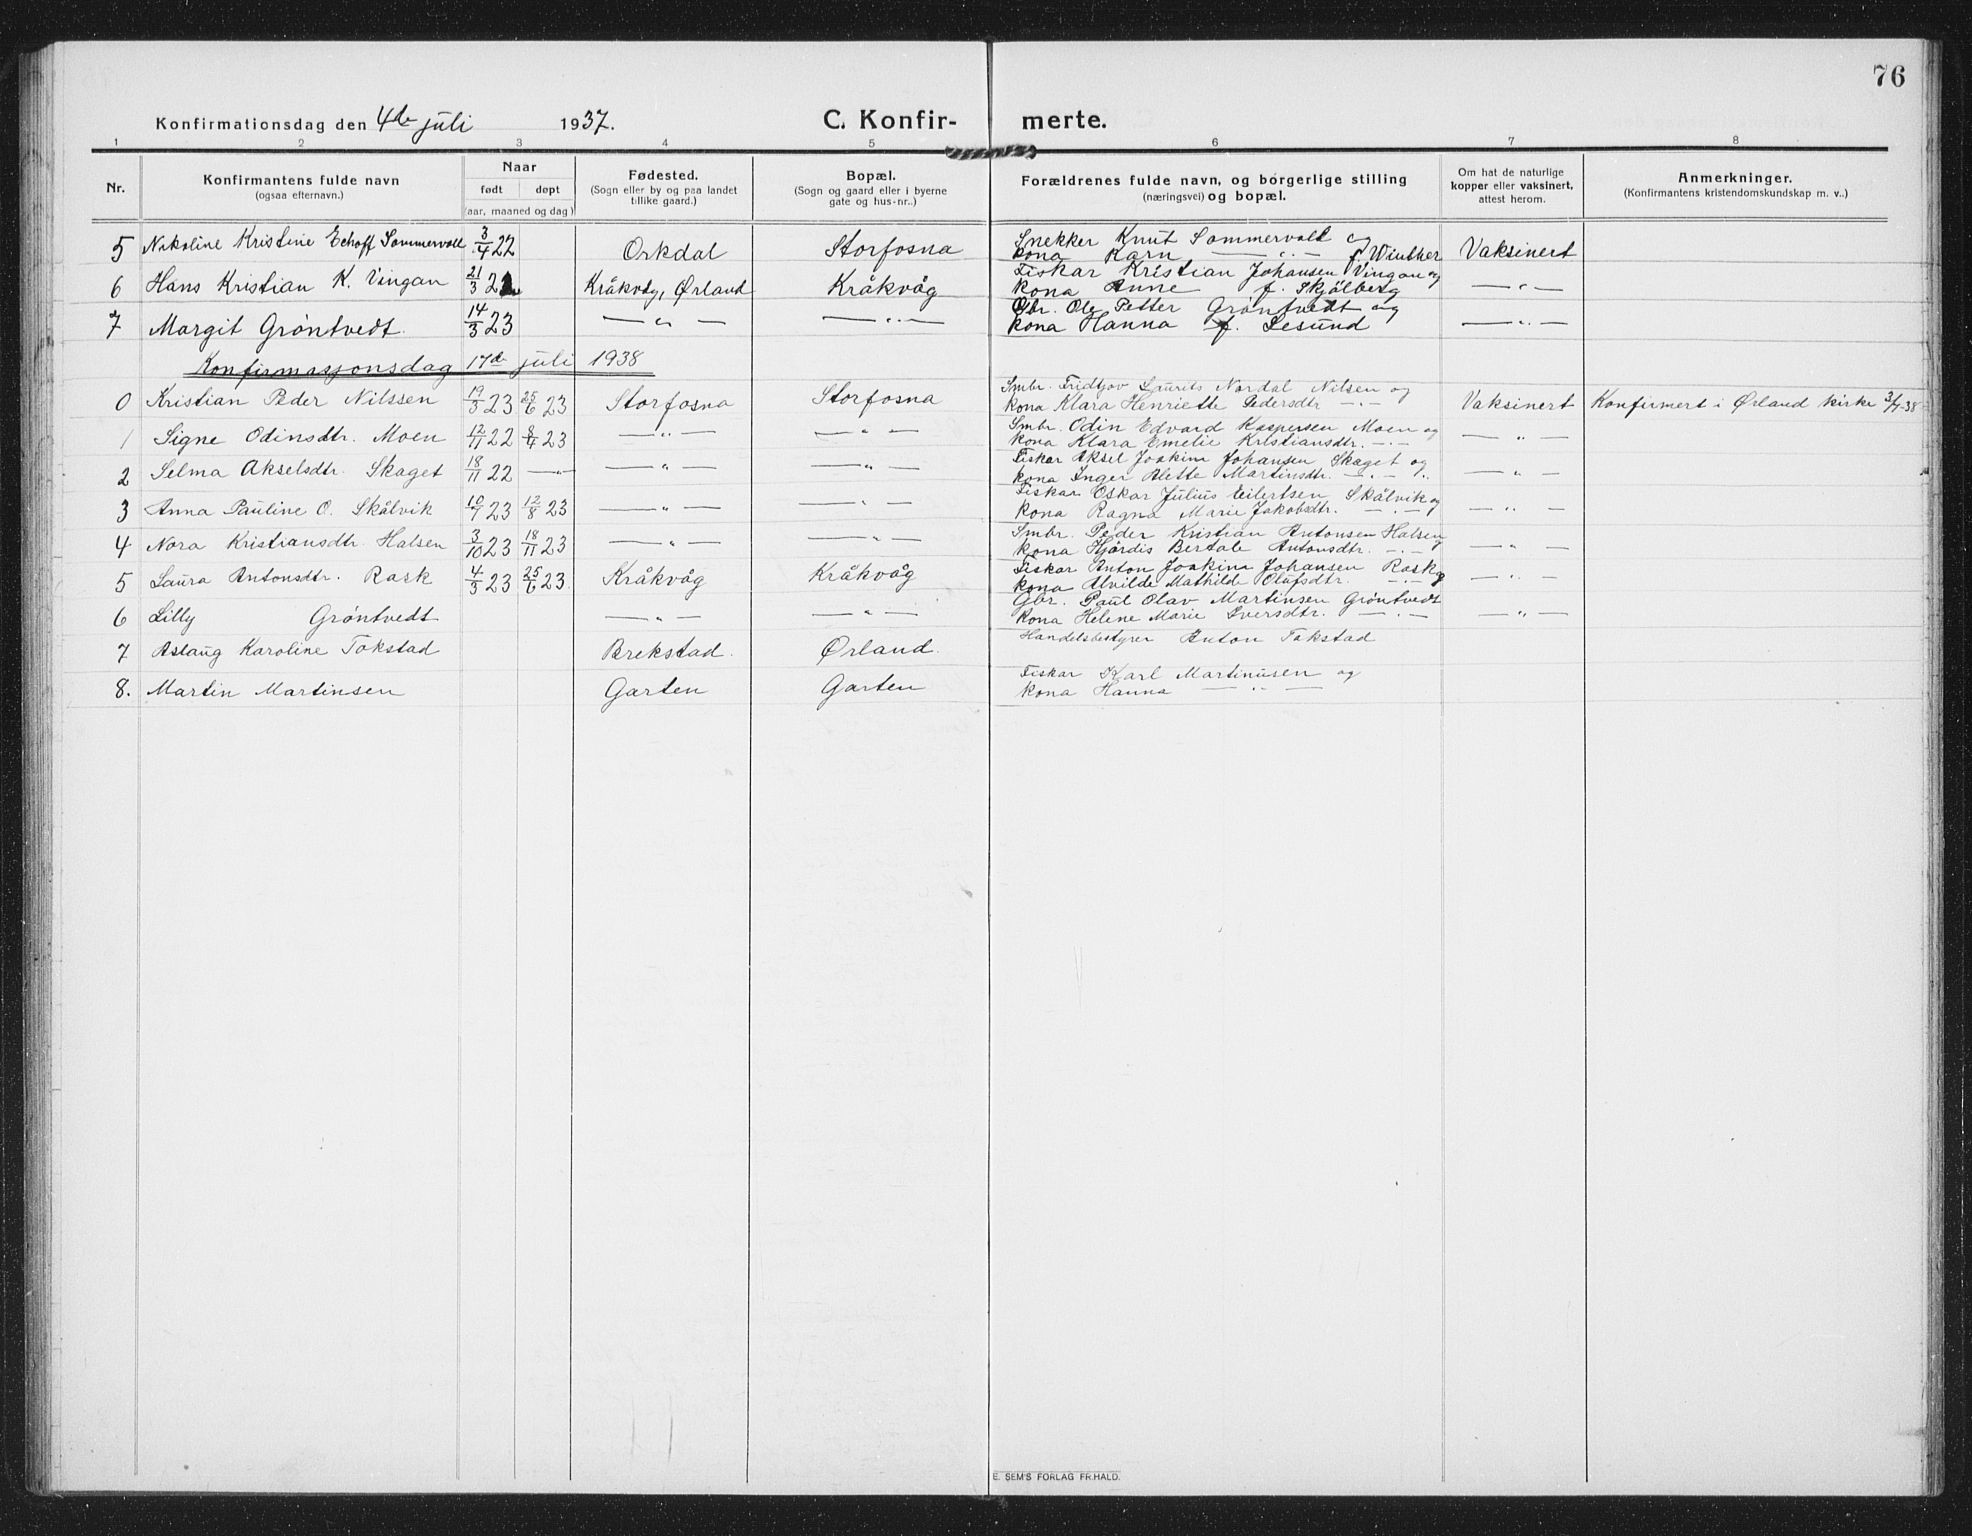 76
Konfirmationsdag den 4de juli 1937. C. Konfir- merte.
1 2 3 4 5 6 7 8
Nr. Konfirmantens fulde navn (ogsaa efternavn.) Naar født døpt (aar, maaned og dag) Fødested. (Sogn eller by og paa landet tillike gaard.) Bopæl. (Sogn og gaard eller i byerne gate og hus-nr..) Forældrenes fulde navn, og borgerlige stilling (næringsvei) og bopæl. Om hat de naturlige kopper eller vaksinert, attest herom. Anmerkninger. (Konfirmantens kristendomskundskap m. v..)
5 Nikoline Kristine Echoff Sommervold 3/4 22 Orkdal Storfosna Snekker Knut Sommervold og Vaksinert
kona Karn — " — f. Winther
6 Hans Kristian K. Vingan 21/3 22 Kråkvåg, Ørland Kråkvåg Fiskar Kristian Johansen Vingan og — " —
kona Anne f. Skjölberg
7 Margit Gröntvedt. 14/3 23 — " — — " — Gbr. Ole Petter Gröntvedt og — " —
kona Hanna f. Lesund
Konfirmasjonsdag 17de juli 1938
0 Kristian Peder Nilssen 19/3 23 25/6 23 Storfosna Storfosna Smbr. Fridtjov Laurits Nordal Nilsen og Vaksinert Konfirmert i Ørland kirke 3/7-38
kona Klara Henriette Pedersdtr — " —
1 Signe Odinsdtr. Moen 12/11 22 8/4 23 — " — — " — Smbr. Odin Edvard Kaspersen Moen og — " —
kona Klara Emelie Kristiansdtr. — " —
2 Selma Akselsdtr. Skaget 18/11 22 — " — — " — — " — Fiskar Aksel Joakim Johansen Skaget og — " —
kona Inger Alette Martinsdtr. — " —
3 Anna Pauline O. Skålvik 10/7 23 12/8 23 — " — — " — Fiskar Oskar Julius Eilertsen Skålvik og — " —
kona Ragna Marie Jakobsdtr. — " —
4 Nora Kristiansdtr. Halsen 3/10 23 18/11 23 — " — — " — Smbr. Peder Kristian Antonsen Halsen — " —
kona Hjördis Bertale Antonsdtr. — " —
5 Laura Antonsdtr. Rask 4/3 23 25/6 23. Kråkvåg Kråkvåg Fiskar Anton Joakim Johansen Rask og — " —
kona Alvilde Mathilde Olafsdtr. — " —
6 Lilly Gröntvedt — " — — " — Gbr. Paul Olav Martinsen Gröntvedt — " —
kona Helene Marie Iversdtr. — " —
7 Aslaug Karoline Tokstad Brekstad. Ørland. Handelsbestyrer Anton Tokstad
8. Martin Martinsen Garten Garten Fiskar Karl Martinusen og
kona Hanna — " —
E. SEM'S FORLAG FR.HALD.